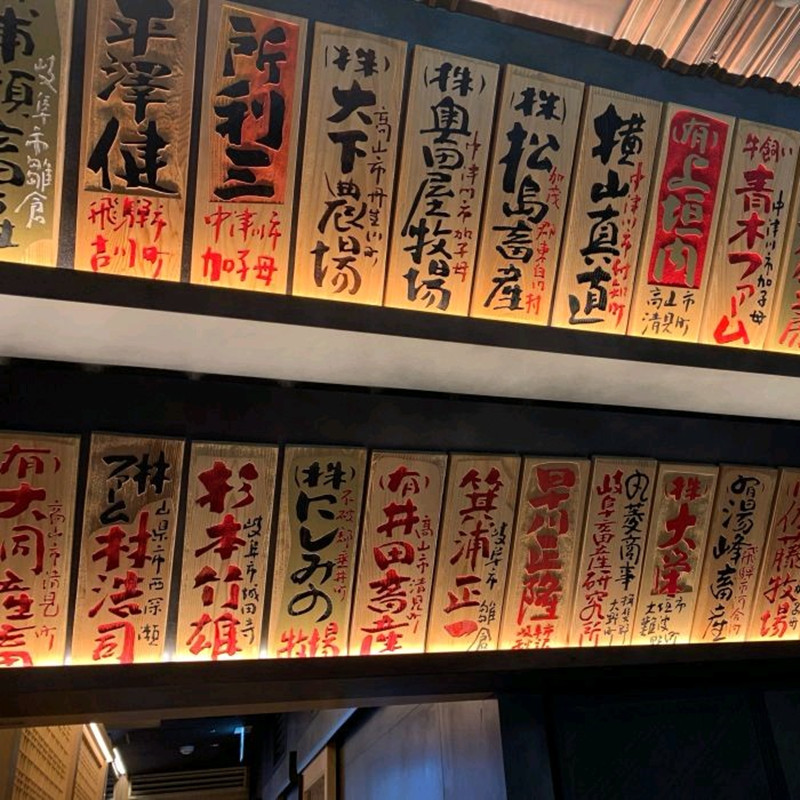 岐阜市雛倉
平澤健
飛騨市
古川町
所利三
中津川市
加子母
(株)大下農場
高山市丹生川町
(株)奥田屋牧場
中津川市加子母
(株)松島畜産
加茂郡東白川村
横山真直
中津川市
(有)上垣内
高山市
清見町
牛飼い
青木ファーム
中津川市加子母
(有)大同産
高山市清見町
林ファーム
村浩司
山県市西深瀬
杉本竹雄
岐阜市城田寺
(株)にしみの
牧場
不破郡垂井町
(有)井田畜産
高山市清見町
箕浦正一
岐阜市雛倉
早川正隆
丸菱商事
岐阜畜産研究所
揖斐郡
大野町
(株)大栄
(有)湯峰畜産
佐藤牧場